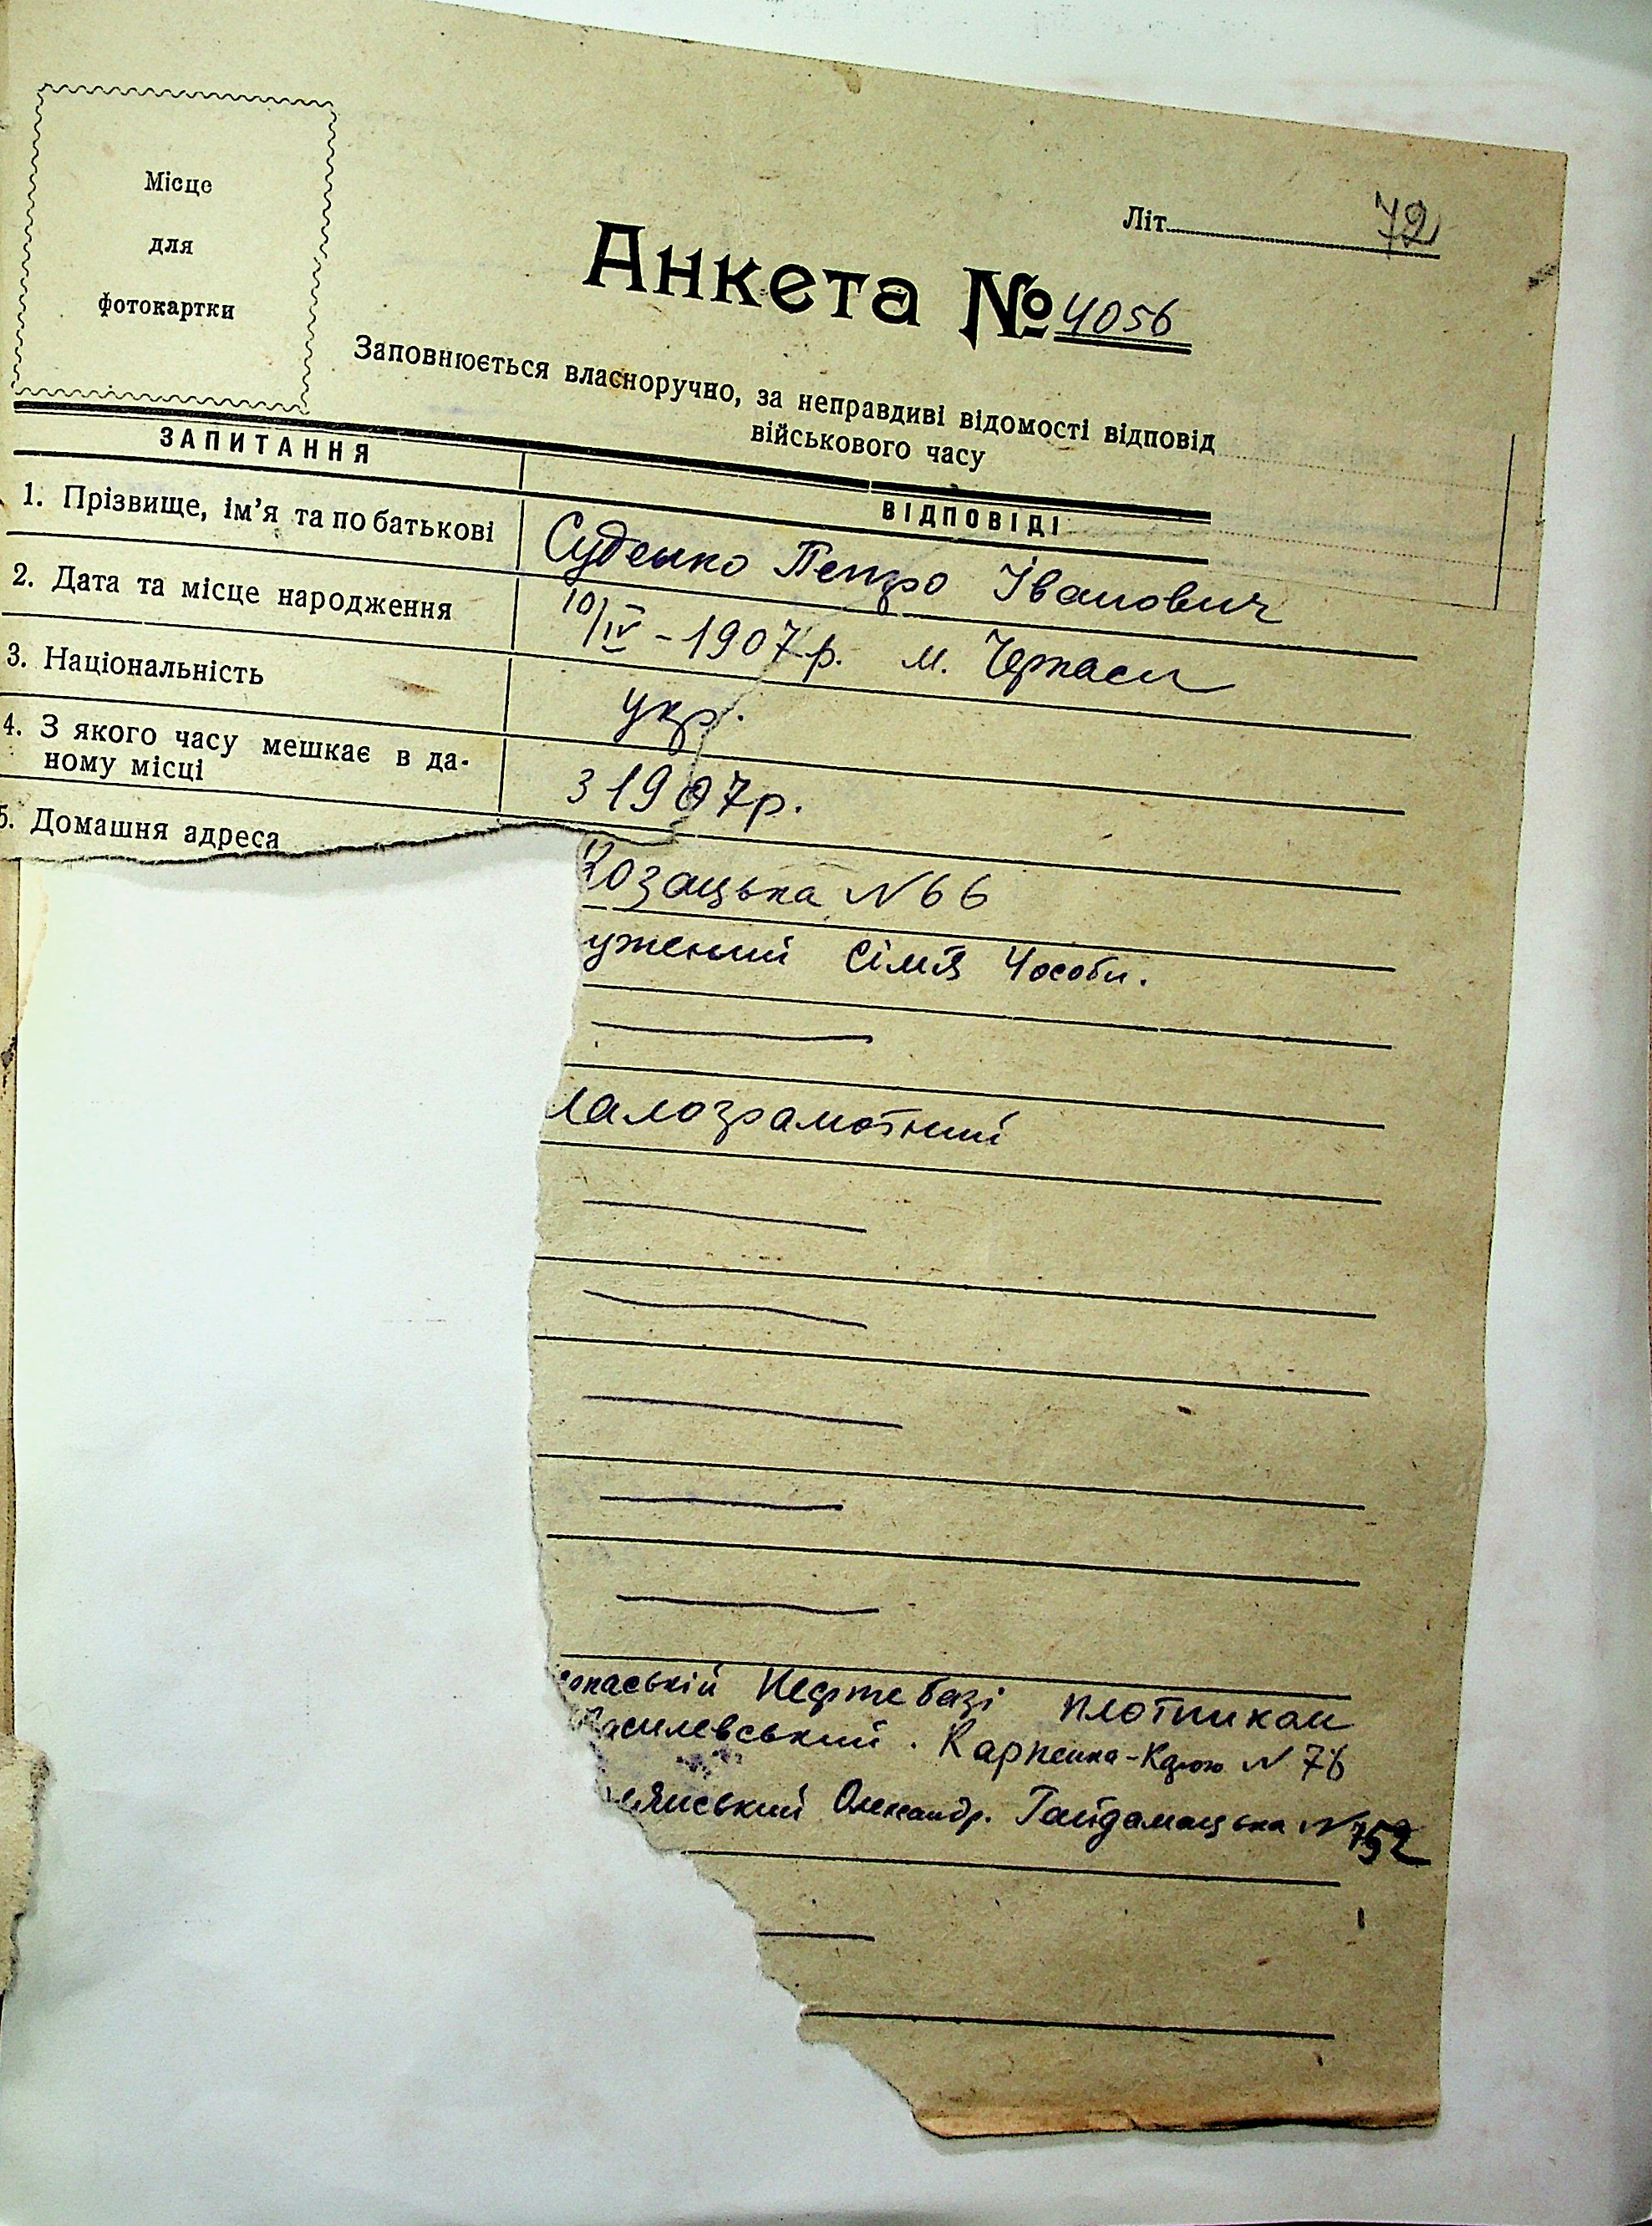 Місце
для
фотокартки
Літ. 72
Анкета № 4056
Заповнюється власноручно, за неправдиві відомості відповід
військового часу
ЗАПИТАННЯ
ВІДПОВІДІ
1. Прізвище, ім'я та по батькові
Суденко Петро Іванович
2. Дата та місце народження
10/IV - 1907 р. м. Черкаси
3. Національність
укр.
4. З якого часу мешкає в да-
ному місці
з 1907 р.
5. Домашня адреса
Козацька N 66
ужений сімя 4 особи.
малограмотний
Нефтебазі плотником
Василевський. Карпенка-Карого N 76
Олександр. Гайдамацька N